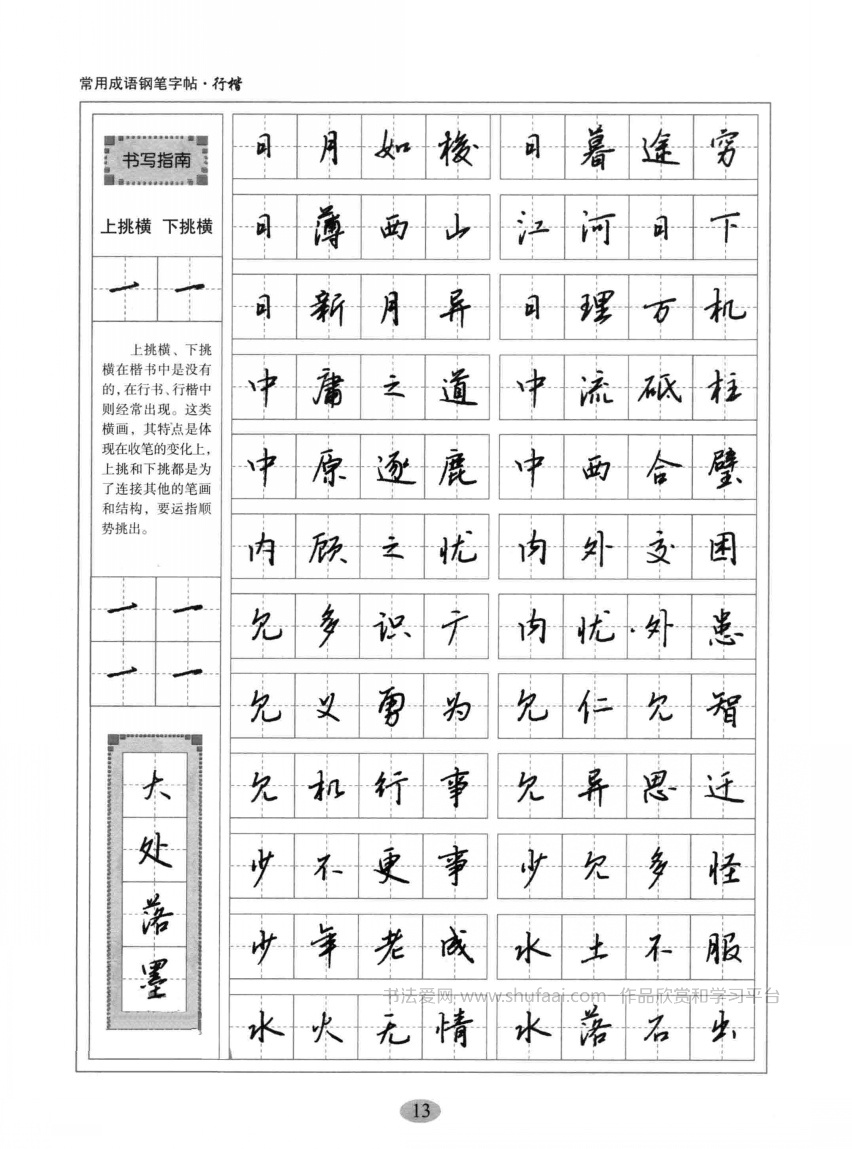 常用成语钢笔字帖·行楷
书写指南
上挑横 下挑横
一 一
上挑横、下挑
横在楷书中是没有
的，在行书、行楷中
则经常出现。这类
横画，其特点是体
现在收笔的变化上，
上挑和下挑都是为
了连接其他的笔画
和结构，要运指顺
势挑出。
一 一
一 一
大处落墨
日月如梭 日暮途穷
日薄西山 江河日下
日新月异 日理万机
中庸之道 中流砥柱
中原逐鹿 中西合璧
内顾之忧 内外交困
见多识广 内忧外患
见义勇为 见仁见智
见机行事 见异思迁
少不更事 少见多怪
少年老成 水土不服
书法爱网 www.shufaai.com 作品欣赏和学习平台
水火无情 水落石出
13